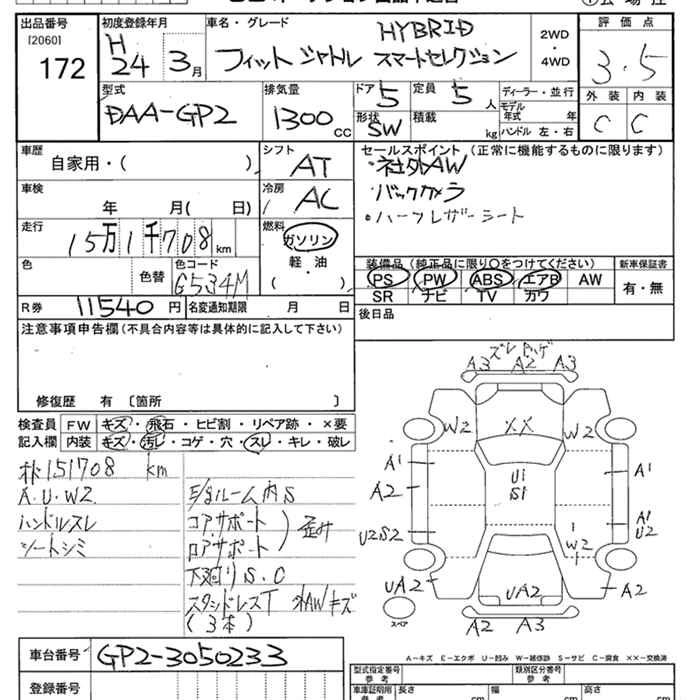 出品番号
[2060]
172
初度登録年月
H
24 3月
車名・グレード
HYBRID
フィットシャトル スマートセレクション
2WD
・
4WD
評価点
3.5
外装 内装
C C
型式
DAA-GP2
排気量
1300 CC
ドア 5
形状 SW
定員 5 人
積載 kg
ディーラー・並行
モデル年式 年
ハンドル 左・右
車歴
自家用・( )
シフト
AT
セールスポイント (正常に機能するものに限ります)
・社外AW
・バックカメラ
・ハーフレザーシート
車検
年 月( 日)
冷房
AC
走行
15万1千708km
燃料
ガソリン
・
軽・油
( )
色
色替
色コード
G534M
装備品 (純正品に限り○をつけてください)
PS PW ABS エアB AW
SR ナビ TV カワ
新車保証書
有・無
R券 11540円 名変通知期限 月 日
後日品
注意事項申告欄 (不具合内容等は具体的に記入して下さい)
修復歴 有 〔箇所 〕
検査員
記入欄
FW キズ・飛石・ヒビ割・リペア跡・×要
内装 キズ・汚レ・コゲ・穴・スレ・キレ・破レ
151708 km
A.U.W2
ハンドルスレ
シートシミ
E/gルーム内S
コアサポート
ロアサポート
歪み
下廻りS.C
スタッドレスT 外AWキズ
(3本)
ズレ ハゲ
A3 A2 A3
W2 XX W2
A1
A2
U1
S1
A1
A1
U2
U2S2
W2
UA2
UA2
A2
スペア
A2 A3
A－キズ E－エクボ U－凹み W－補修跡 S－サビ C－腐食 XX－交換済
車台番号 GP2-3050233
登録番号
型式指定番号
参考
類別区分番号
参考
車庫証明用
参考
長さ cm
幅 cm
高さ cm